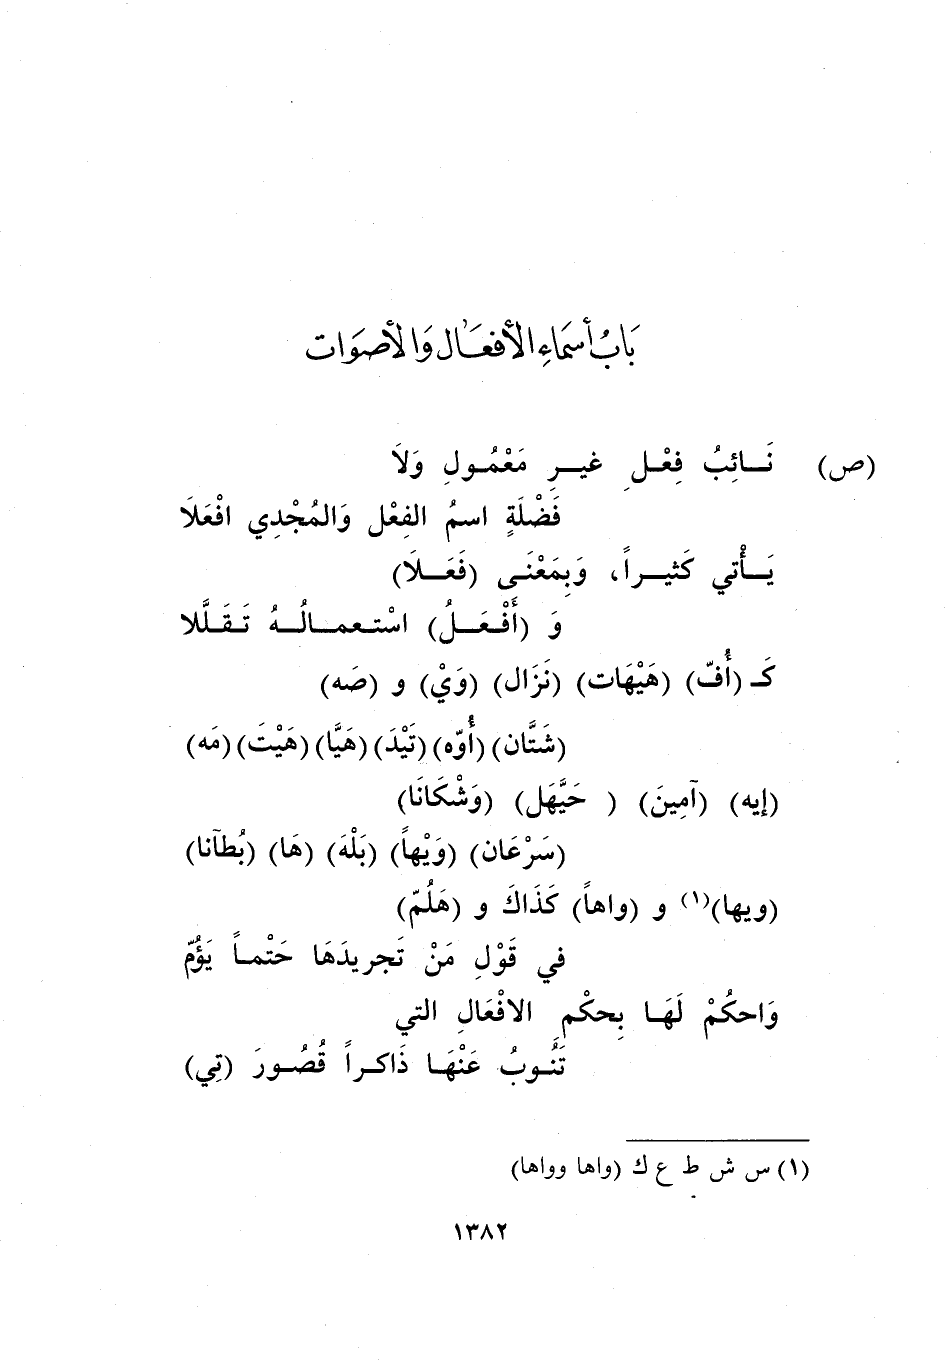 بَابُ أسمَاءِ الأفعَال وَالأصوَات
(ص) نَـائِبُ فِعْـلٍ غيـرِ مَعْمُـولٍ وَلاَ
فَضْلَةٍ اسمُ الفِعْل وَالمُجْدِي افْعَلَا
يَـأْتي كَثيـراً، وَبِمَعْنَـى (فَعَـلَا)
وَ (أَفْعَـلُ) اسْتعمـالُـهُ تَقَلَّلا
كَـ (أُفّ) (هَيْهَات) (نَزَال) (وَيْ) و (صَه)
(شَتَّان) (أُوّه) (تَيْدَ) (هَيَّا) (هَيْتَ) (مَه)
(إيه) (آمِينَ) ( حَيَّهَل) (وَشْكَانَا)
(سَرْعَان) (وَيْهاً) (بَلْهَ) (هَا) (بُطآنا)
(ويها)(١) و (واهاً) كَذَاكَ و (هَلُمّ)
في قَوْلِ مَنْ تَجريدَهَا حَتْمـاً يَؤُمّ
وَاحكُمْ لَهَـا بِحكْمِ الافْعَالِ التي
تَنُـوبُ عَنْهَـا ذَاكـراً قُصُـورَ (تِي)
(١) س ش ط ع ك (واها وواها)
١٣٨٢